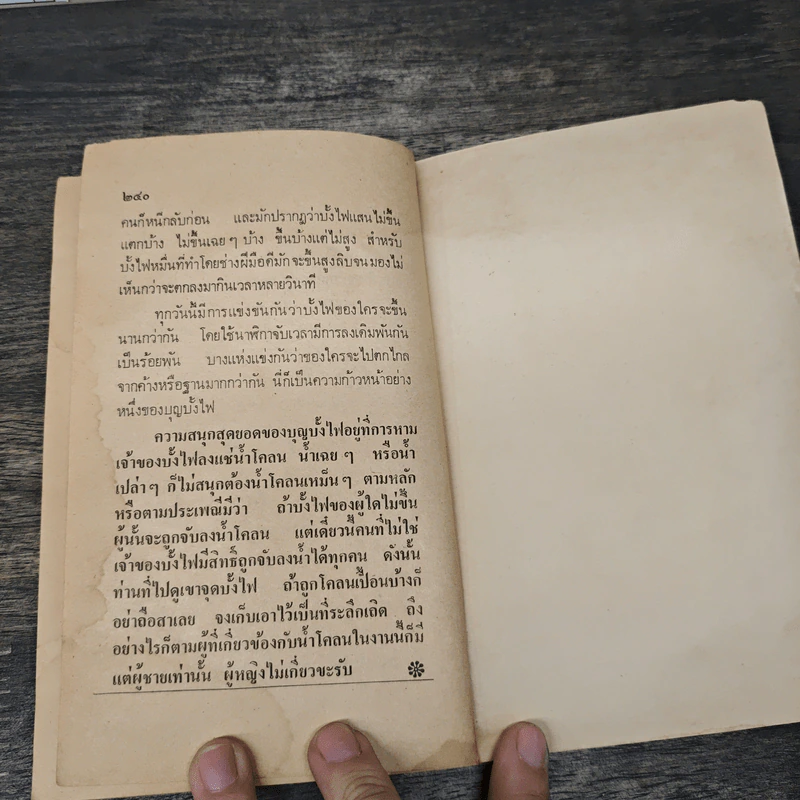 ๒๔๐
คนก็หนีกลับก่อน และมักปรากฏว่าบั้งไฟแสนไม่ขึ้น
แตกบ้าง ไม่ขึ้นเฉยๆ บ้าง ขึ้นบ้างแต่ไม่สูง สำหรับ
บั้งไฟหมื่นที่ทำโดยช่างฝีมือดีมักจะขึ้นสูงลิบจนมองไม่
เห็นกว่าจะตกลงมากินเวลาหลายวินาที
ทุกวันนี้มีการแข่งขันกันว่าบั้งไฟของใครจะขึ้น
นานกว่ากัน โดยใช้นาฬิกาจับเวลามีการลงเดิมพันกัน
เป็นร้อยพัน บางแห่งแข่งกันว่าของใครจะไปตกไกล
จากค้างหรือฐานมากกว่ากัน นี่ก็เป็นความก้าวหน้าอย่าง
หนึ่งของบุญบั้งไฟ
ความสนุกสุดยอดของบุญบั้งไฟอยู่ที่การหาม
เจ้าของบั้งไฟลงแช่น้ำโคลน น้ำเฉยๆ หรือน้ำ
เปล่าๆ ก็ไม่สนุกต้องน้ำโคลนเหม็นๆ ตามหลัก
หรือตามประเพณีมีว่า ถ้าบั้งไฟของผู้ใดไม่ขึ้น
ผู้นั้นจะถูกจับลงน้ำโคลน แต่เดี๋ยวนี้คนที่ไม่ใช่
เจ้าของบั้งไฟมีสิทธิ์ถูกจับลงน้ำได้ทุกคน ดังนั้น
ท่านที่ไปดูเขาจุดบั้งไฟ ถ้าถูกโคลนเปื้อนบ้างก็
อย่าถือสาเลย จงเก็บเอาไว้เป็นที่ระลึกเถิด ถึง
อย่างไรก็ตามผู้ที่เกี่ยวข้องกับน้ำโคลนในงานนี้ก็มี
แต่ผู้ชายเท่านั้น ผู้หญิงไม่เกี่ยวขะรับ